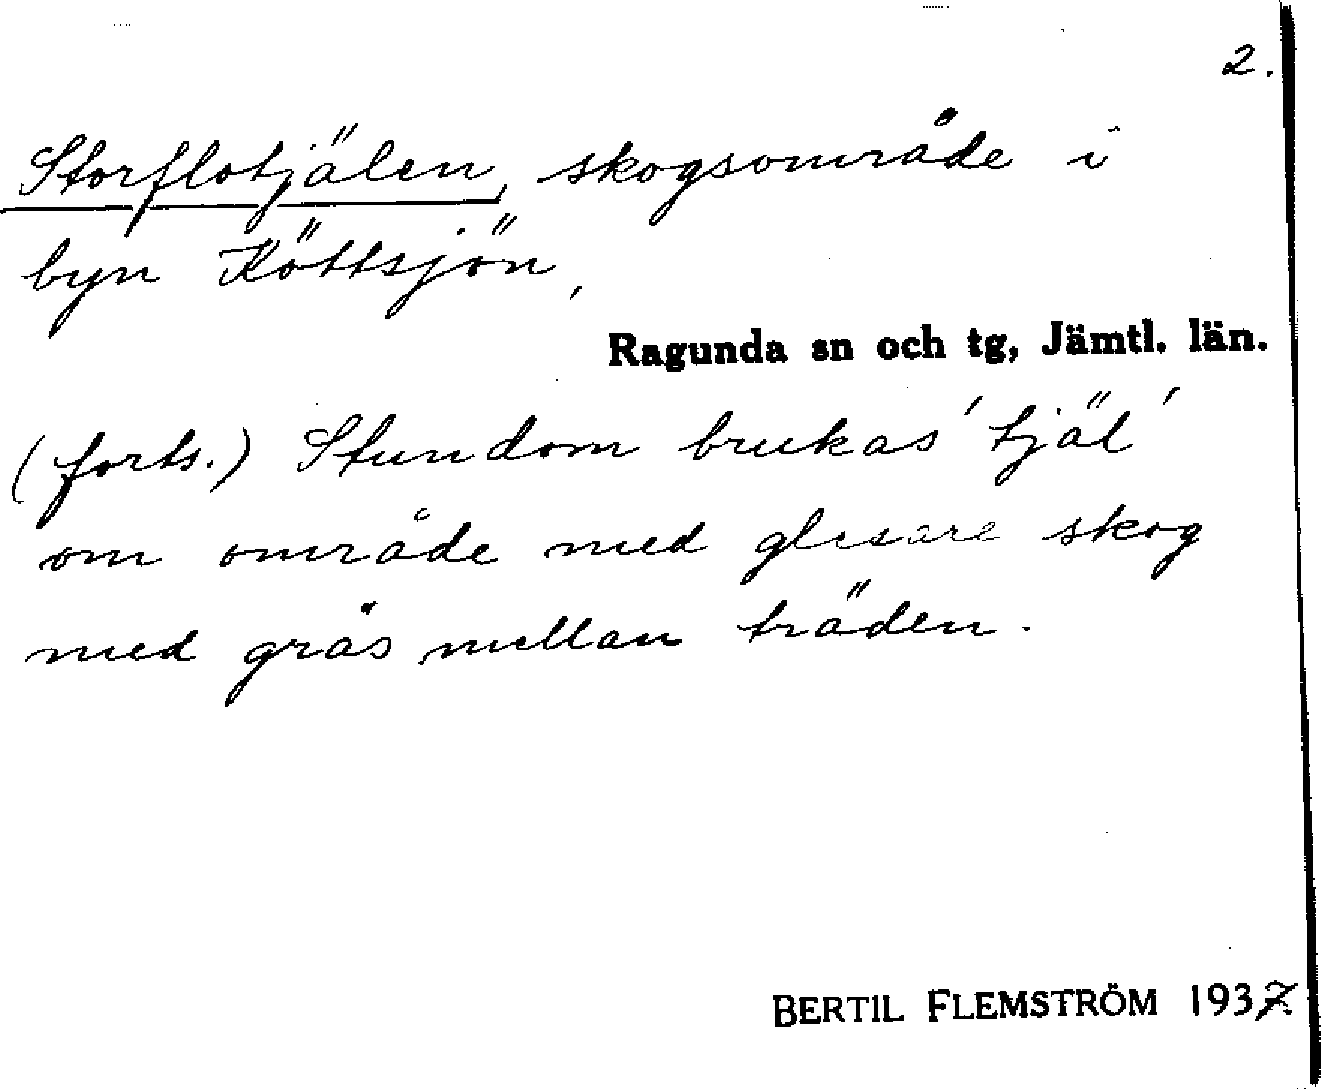 2.
Storflotjälen, skogsområde i
byn Köttsjön,
Ragunda sn och tg, Jämtl. län.
(forts.) Stundom brukas 'tjäl'
om område med glesare skog
med gräs mellan träden.
BERTIL FLEMSTRÖM 1937.